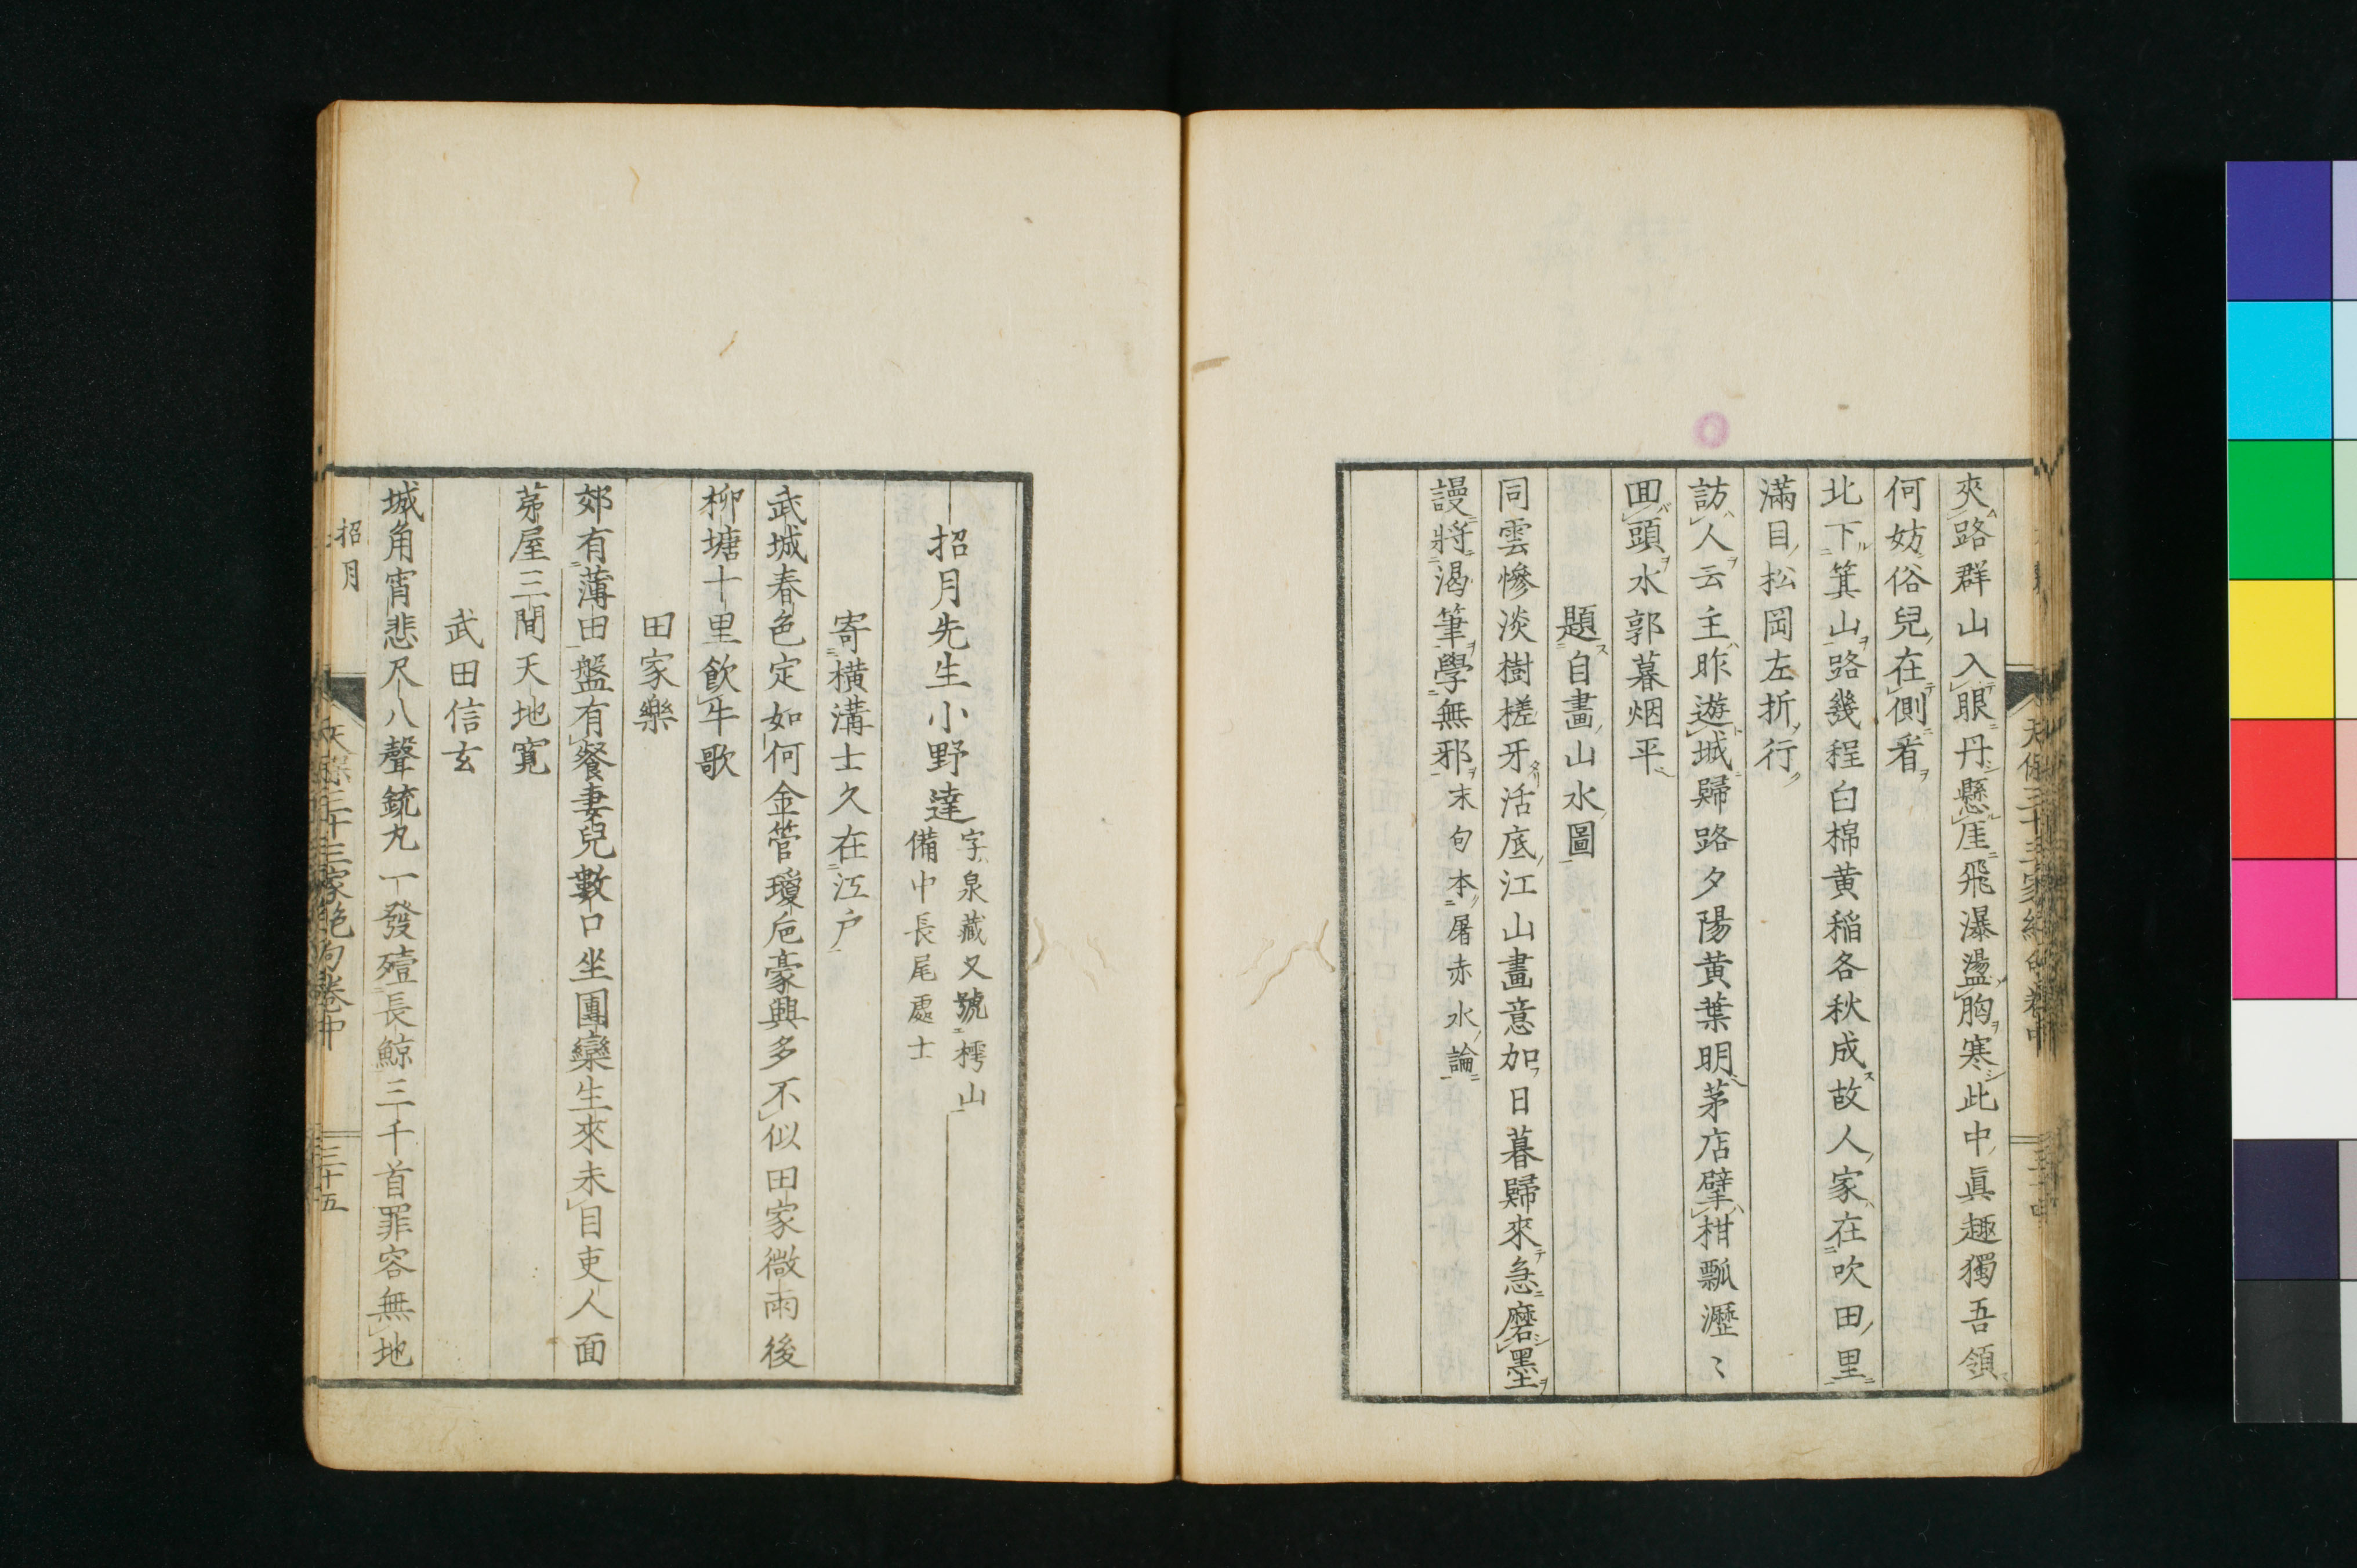 夾路群山入眼丹懸厓飛瀑盪胸寒此中眞趣獨吾領
何妨俗兒在側看
北下箕山路幾程白棉黄稲各秋成故人家在吹田里
滿目松岡左折行
訪人云主昨遊城歸路夕陽黄葉明茅店擘柑瓢瀝〻
囬頭水郭暮烟平
題自畫山水圖
同雲慘淡樹槎牙活底江山畫意加日暮歸來急磨墨
謾將渴筆學無邪末句本屠赤水論
招月先生小野達
字泉藏又號樗山
備中長尾處士
寄横溝士久在江户
武城春色定如何金管瓊卮豪興多不似田家微雨後
柳塘十里飲牛歌
田家樂
郊有薄田盤有餐妻兒數口坐團欒生來未目吏人面
茅屋三間天地寛
武田信玄
城角宵悲尺八聲銃丸一發殪長鯨三千首罪容無地
招月
天保三十三家絶句卷中
三十五